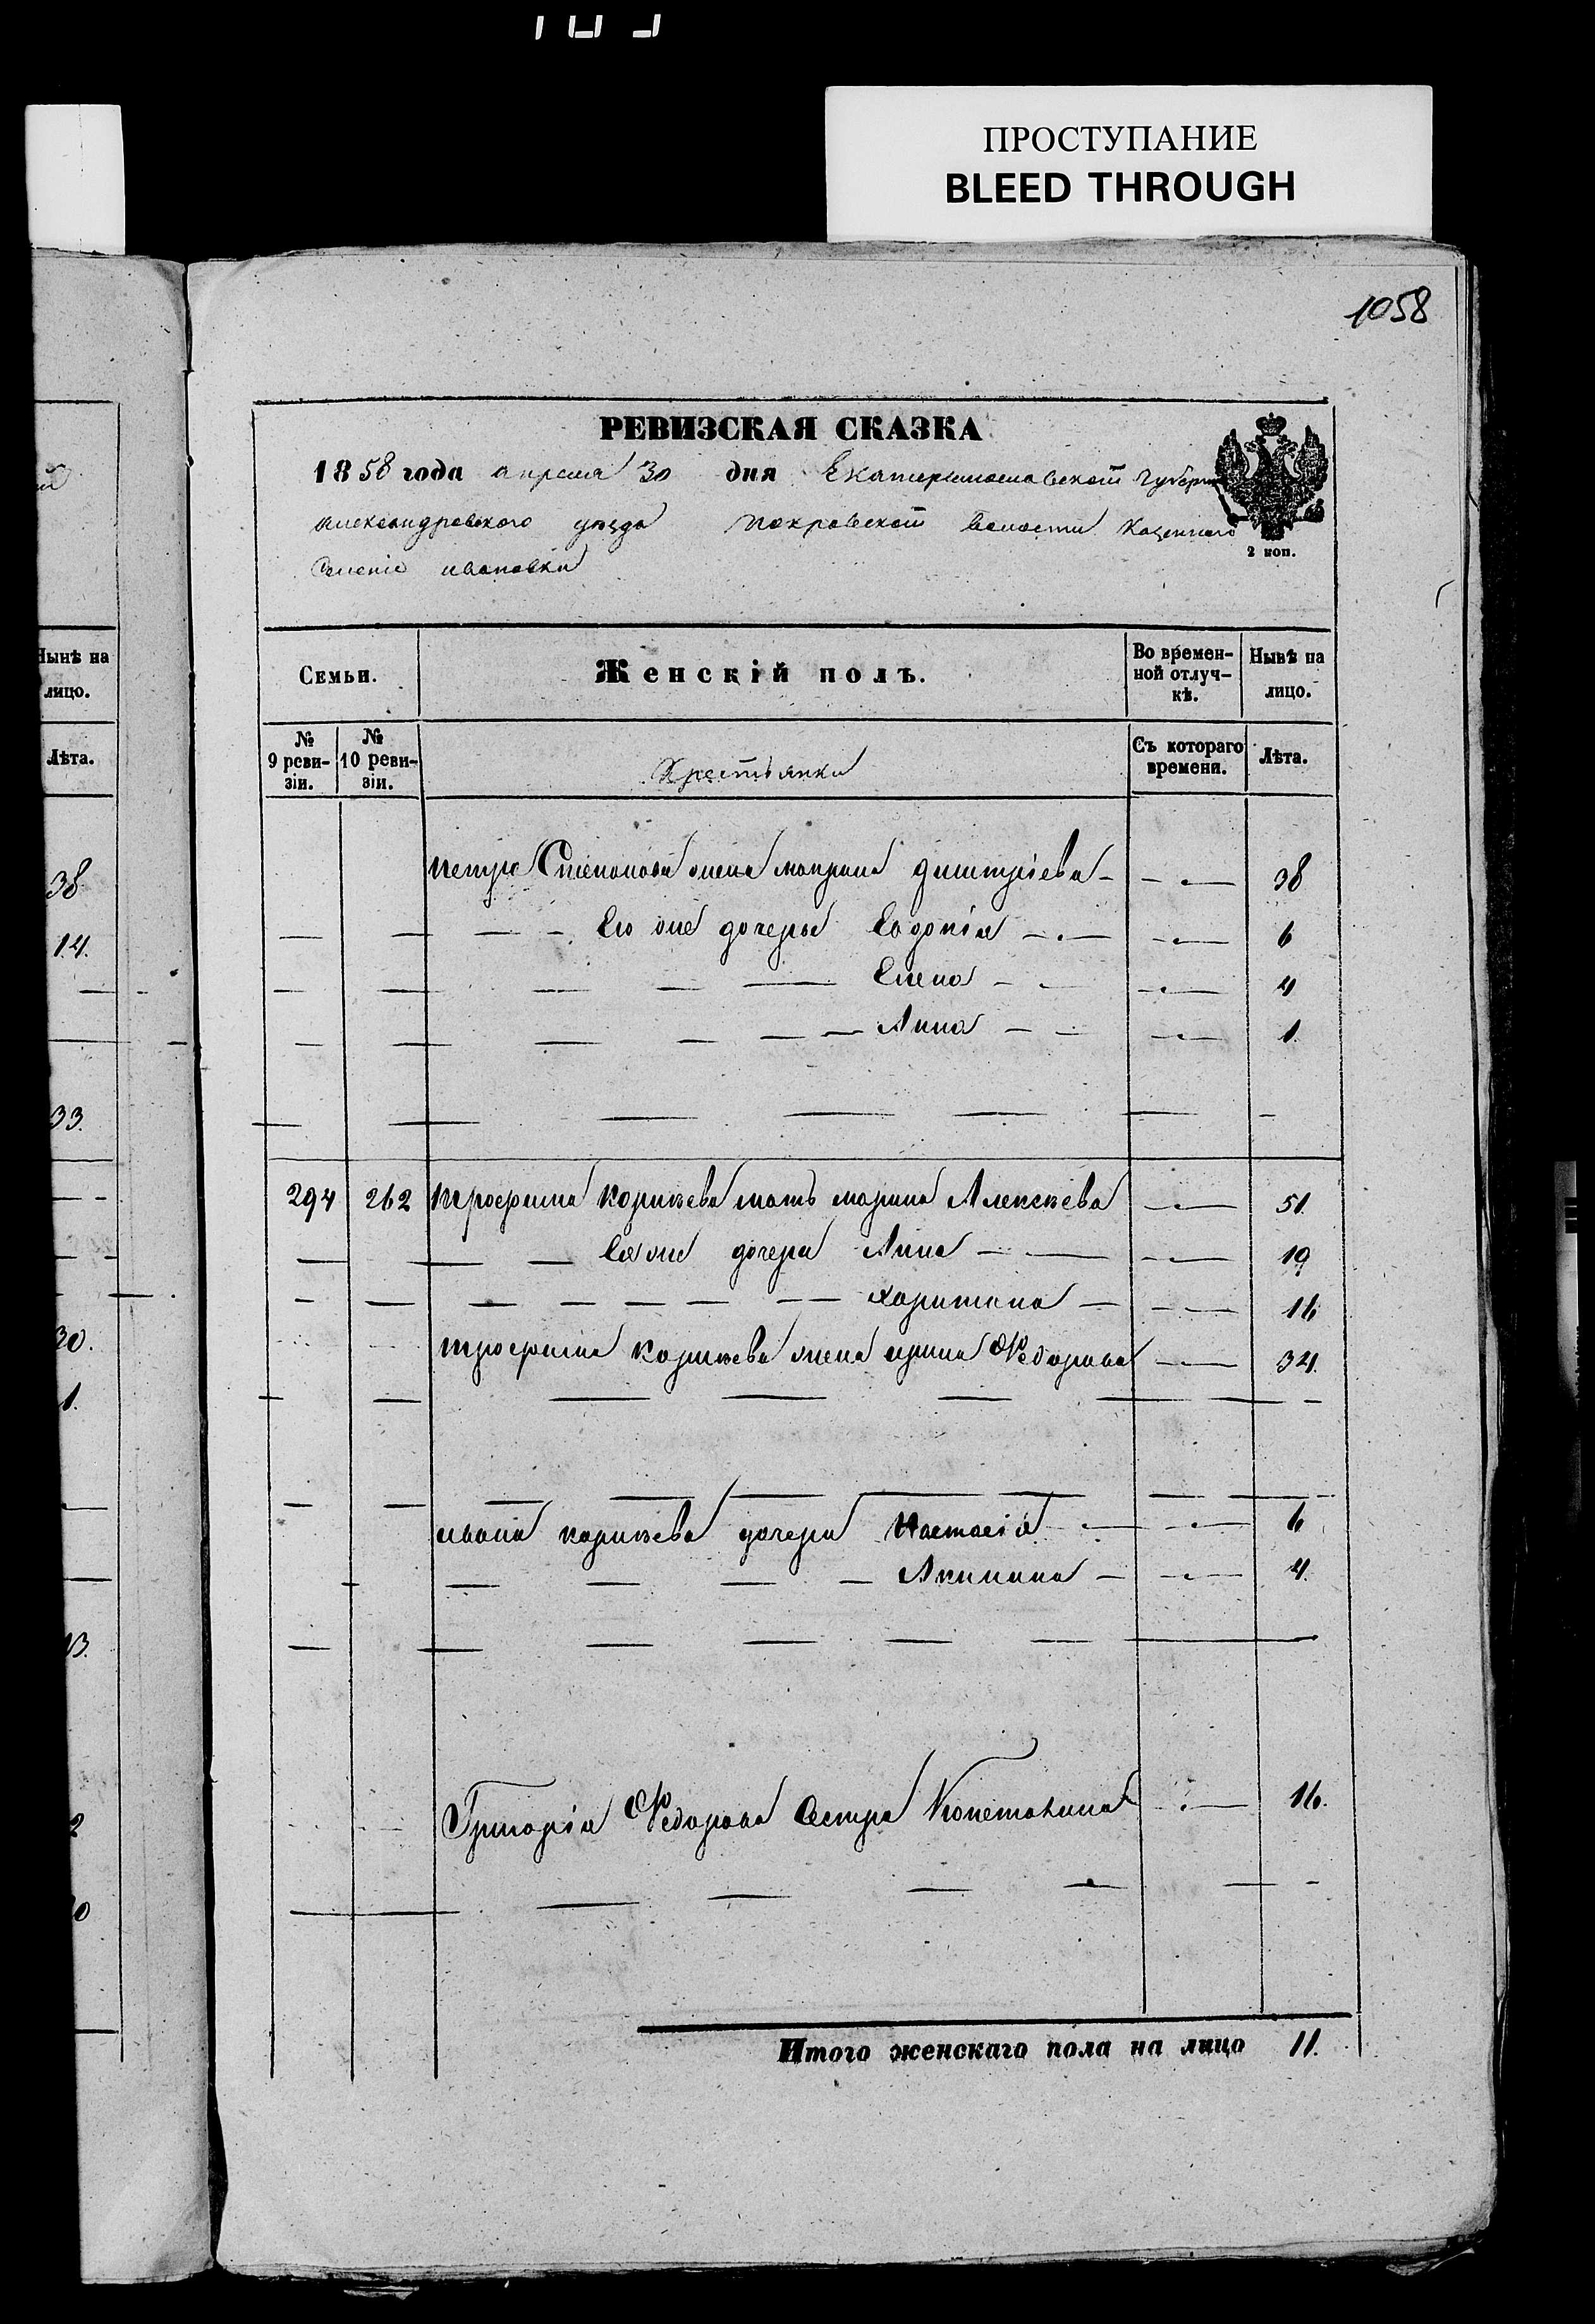 ПРОСТУПАНИЕ
BLEED THROUGH
1058
РЕВИЗСКАЯ СКАЗКА
1858 года апреля 30 дня Екатеринославской Губерни
александровского уезда покровской волости Казенного
Селенія ивановки
2 коп.
Семьи. Женскій полъ. Во временной отлучкѣ. Нынѣ на лицо.
№ 9 ревизіи. № 10 ревизіи. Крестьянки Съ котораго времени. Лѣта.
петра Степанова жена матрина дмитріева 38
Его же дочеры Евдокія 6
Елена 4
Анна 1.
294 262 трофима корнѣева мать марина Алексѣева 51.
Ея же дочери Анна 19
харитина 16
трофима корнѣева жена ирина Федорова 34.
ивана корнѣева дочери Настасія 6
Акилина 4.
Григорія Федорова Сестра 16.
Итого женскаго пола на лицо 11.
Нынѣ на
лицо.
Лѣта.
38
14.
33.
30.
1.
13.
2
0